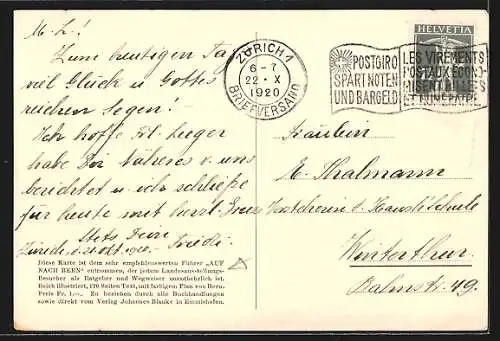 M. L.!
Zum heutigen Tag
viel Glück u. Gottes
reichen Segen!
Ich hoffe Frl. Zieger
habe Dir Näheres v. uns
berichtet u. ich schließe
für heute mit herzl. Gruss
Stets Deine
Zürich, d. 21. Okt. 1920. Friedi.
Diese Karte ist dem sehr empfehlenswerten Führer „AUF
NACH BERN“ entnommen, der jedem Landesausstellungs-
Besucher als Ratgeber und Wegweiser unentbehrlich ist.
Reich illustriert, 170 Seiten Text, mit farbigem Plan von Bern.
Preis Fr. 1.—. Zu beziehen durch alle Buchhandlungen
sowie direkt vom Verlag Johannes Blanke in Emmishofen.
ZÜRICH 1
6-7
22·X
1920
BRIEFVERSAND
POSTGIRO
SPART NOTEN
UND BARGELD
LES VIREMENTS
POSTAUX ÉCONO-
MISENT BILLETS
ET NUMÉRAIRE
HELVETIA
Fräulein
E. Thalmann
d. Haush. Schule
Winterthur.
Palmstr. 49.